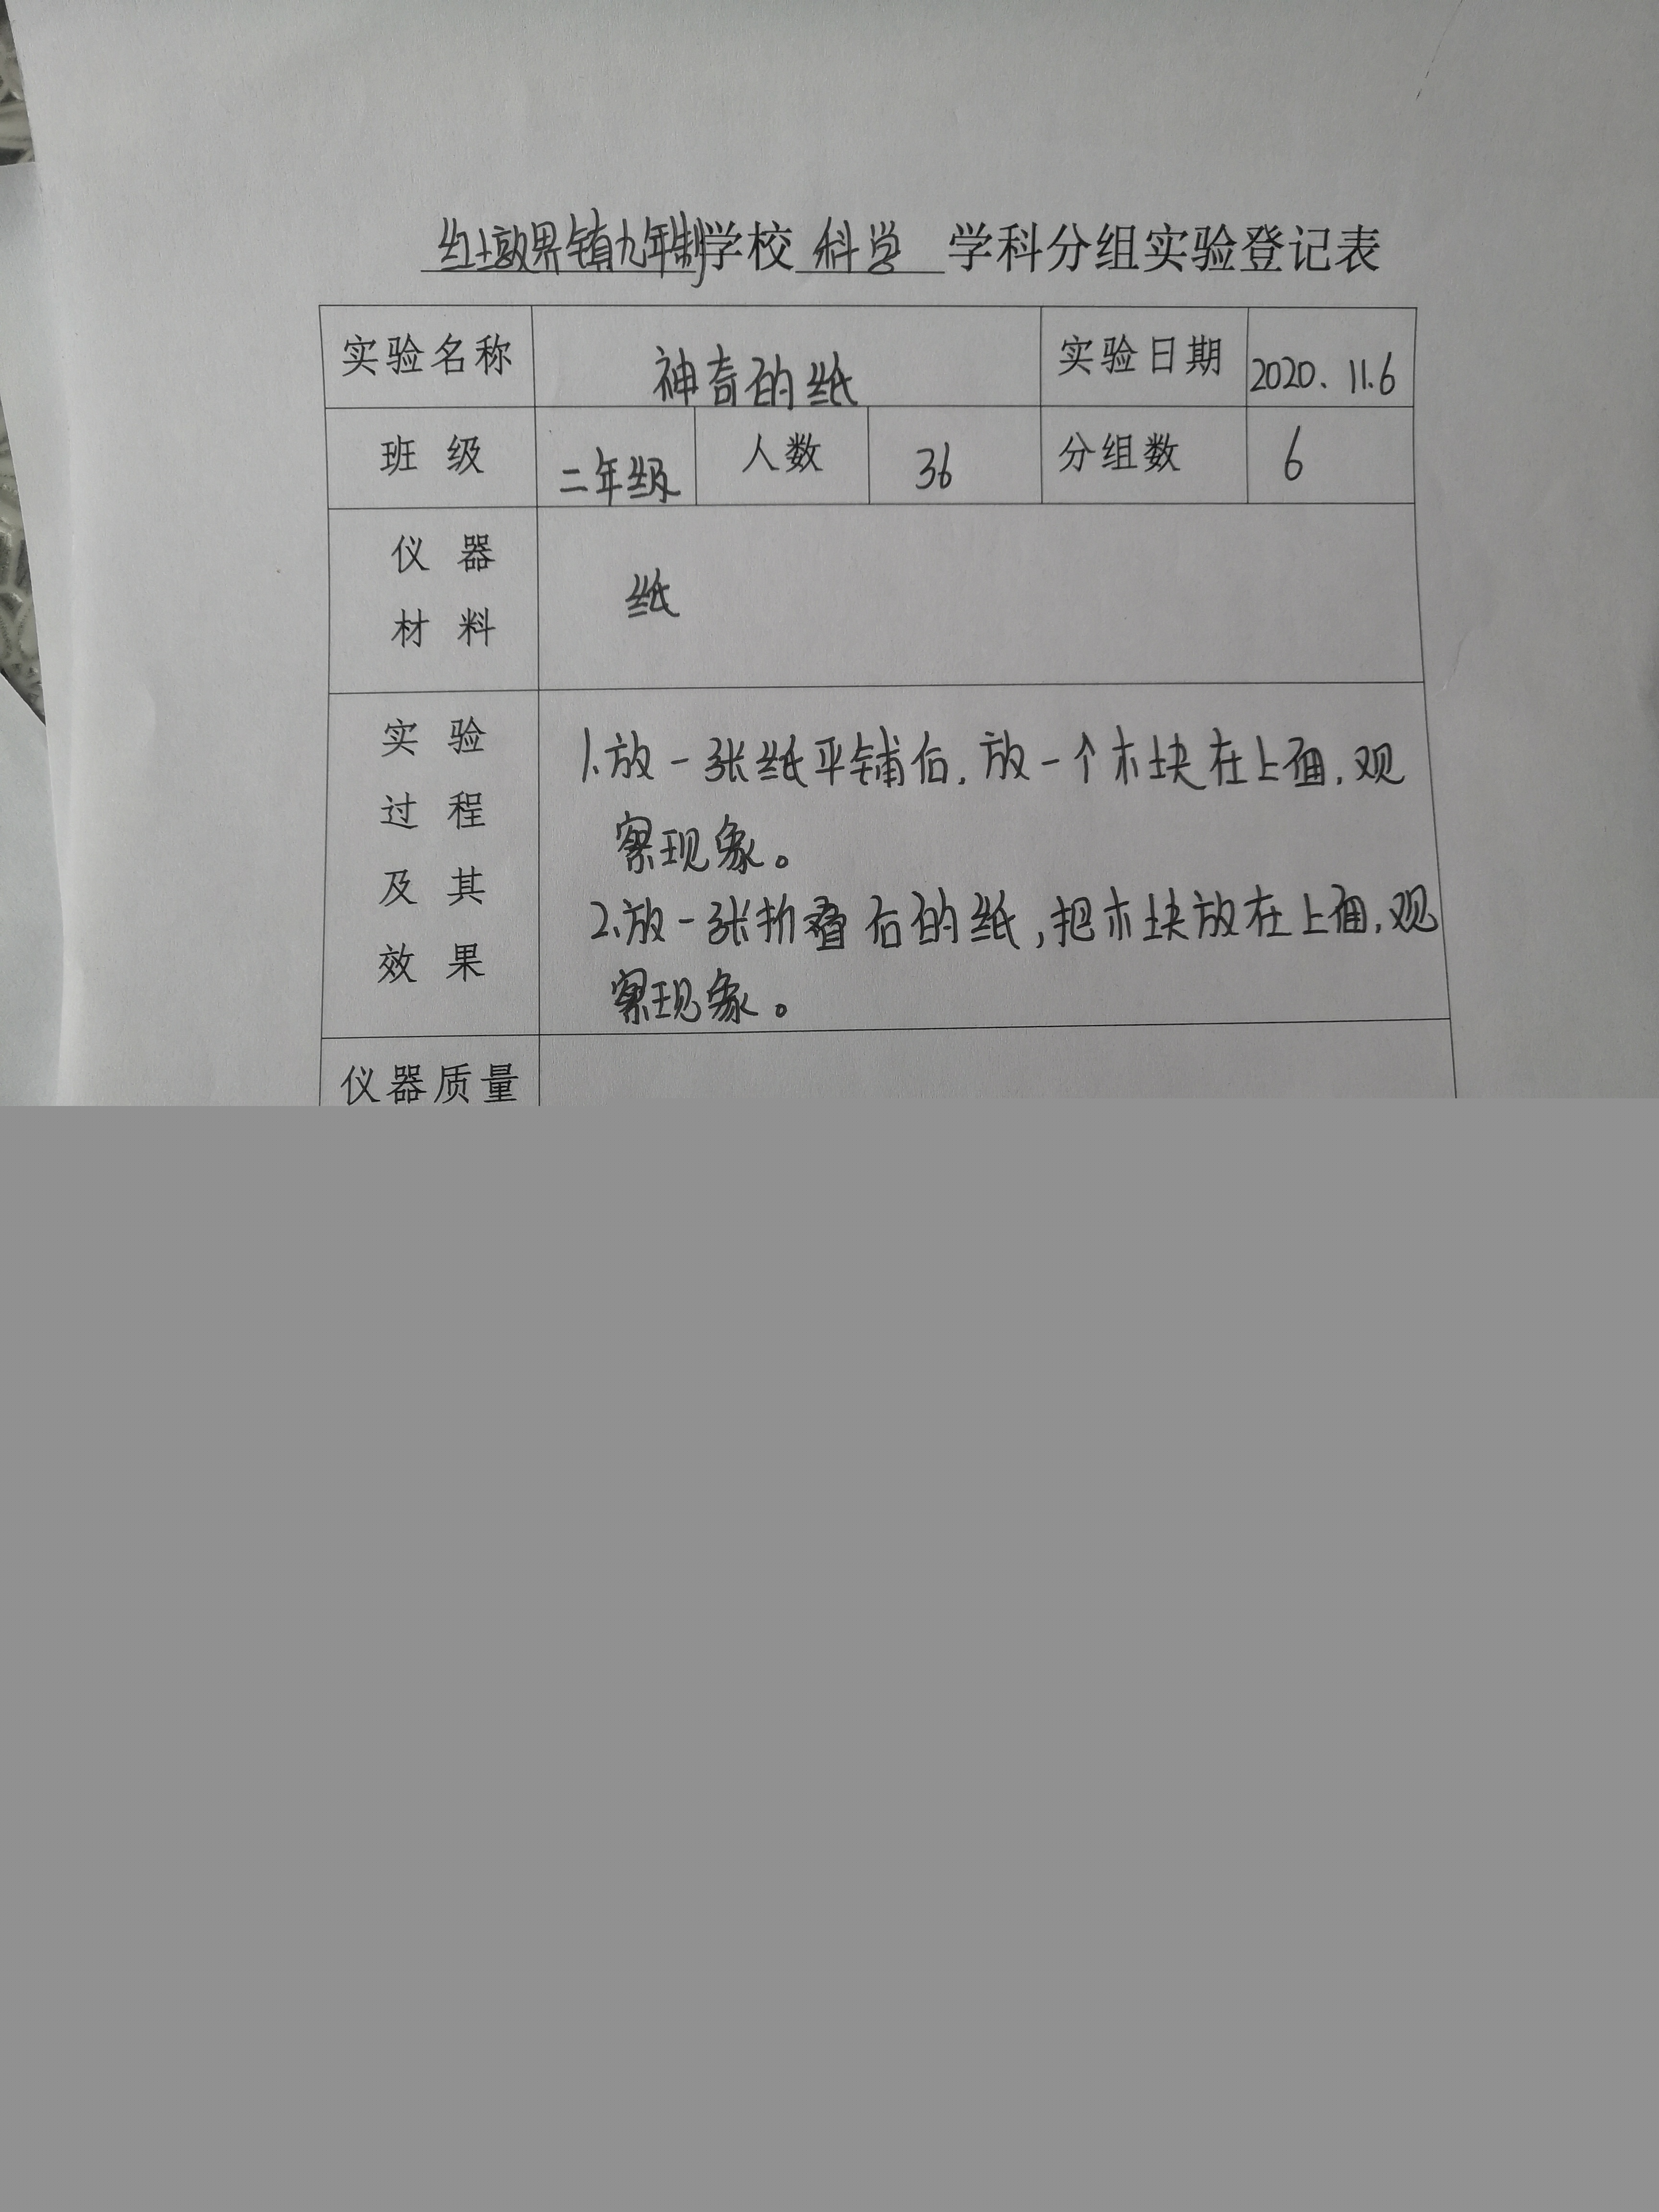 红墩界镇九年制学校 科学 学科分组实验登记表
实验名称 神奇的纸 实验日期 2020.11.6
班级 二年级 人数 36 分组数 6
仪器
材料
纸
实验
过程
及其
效果
1.放一张纸平铺后,放一个木块在上面,观
察现象。
2.放一张折叠后的纸,把木块放在上面,观
察现象。
仪器质量